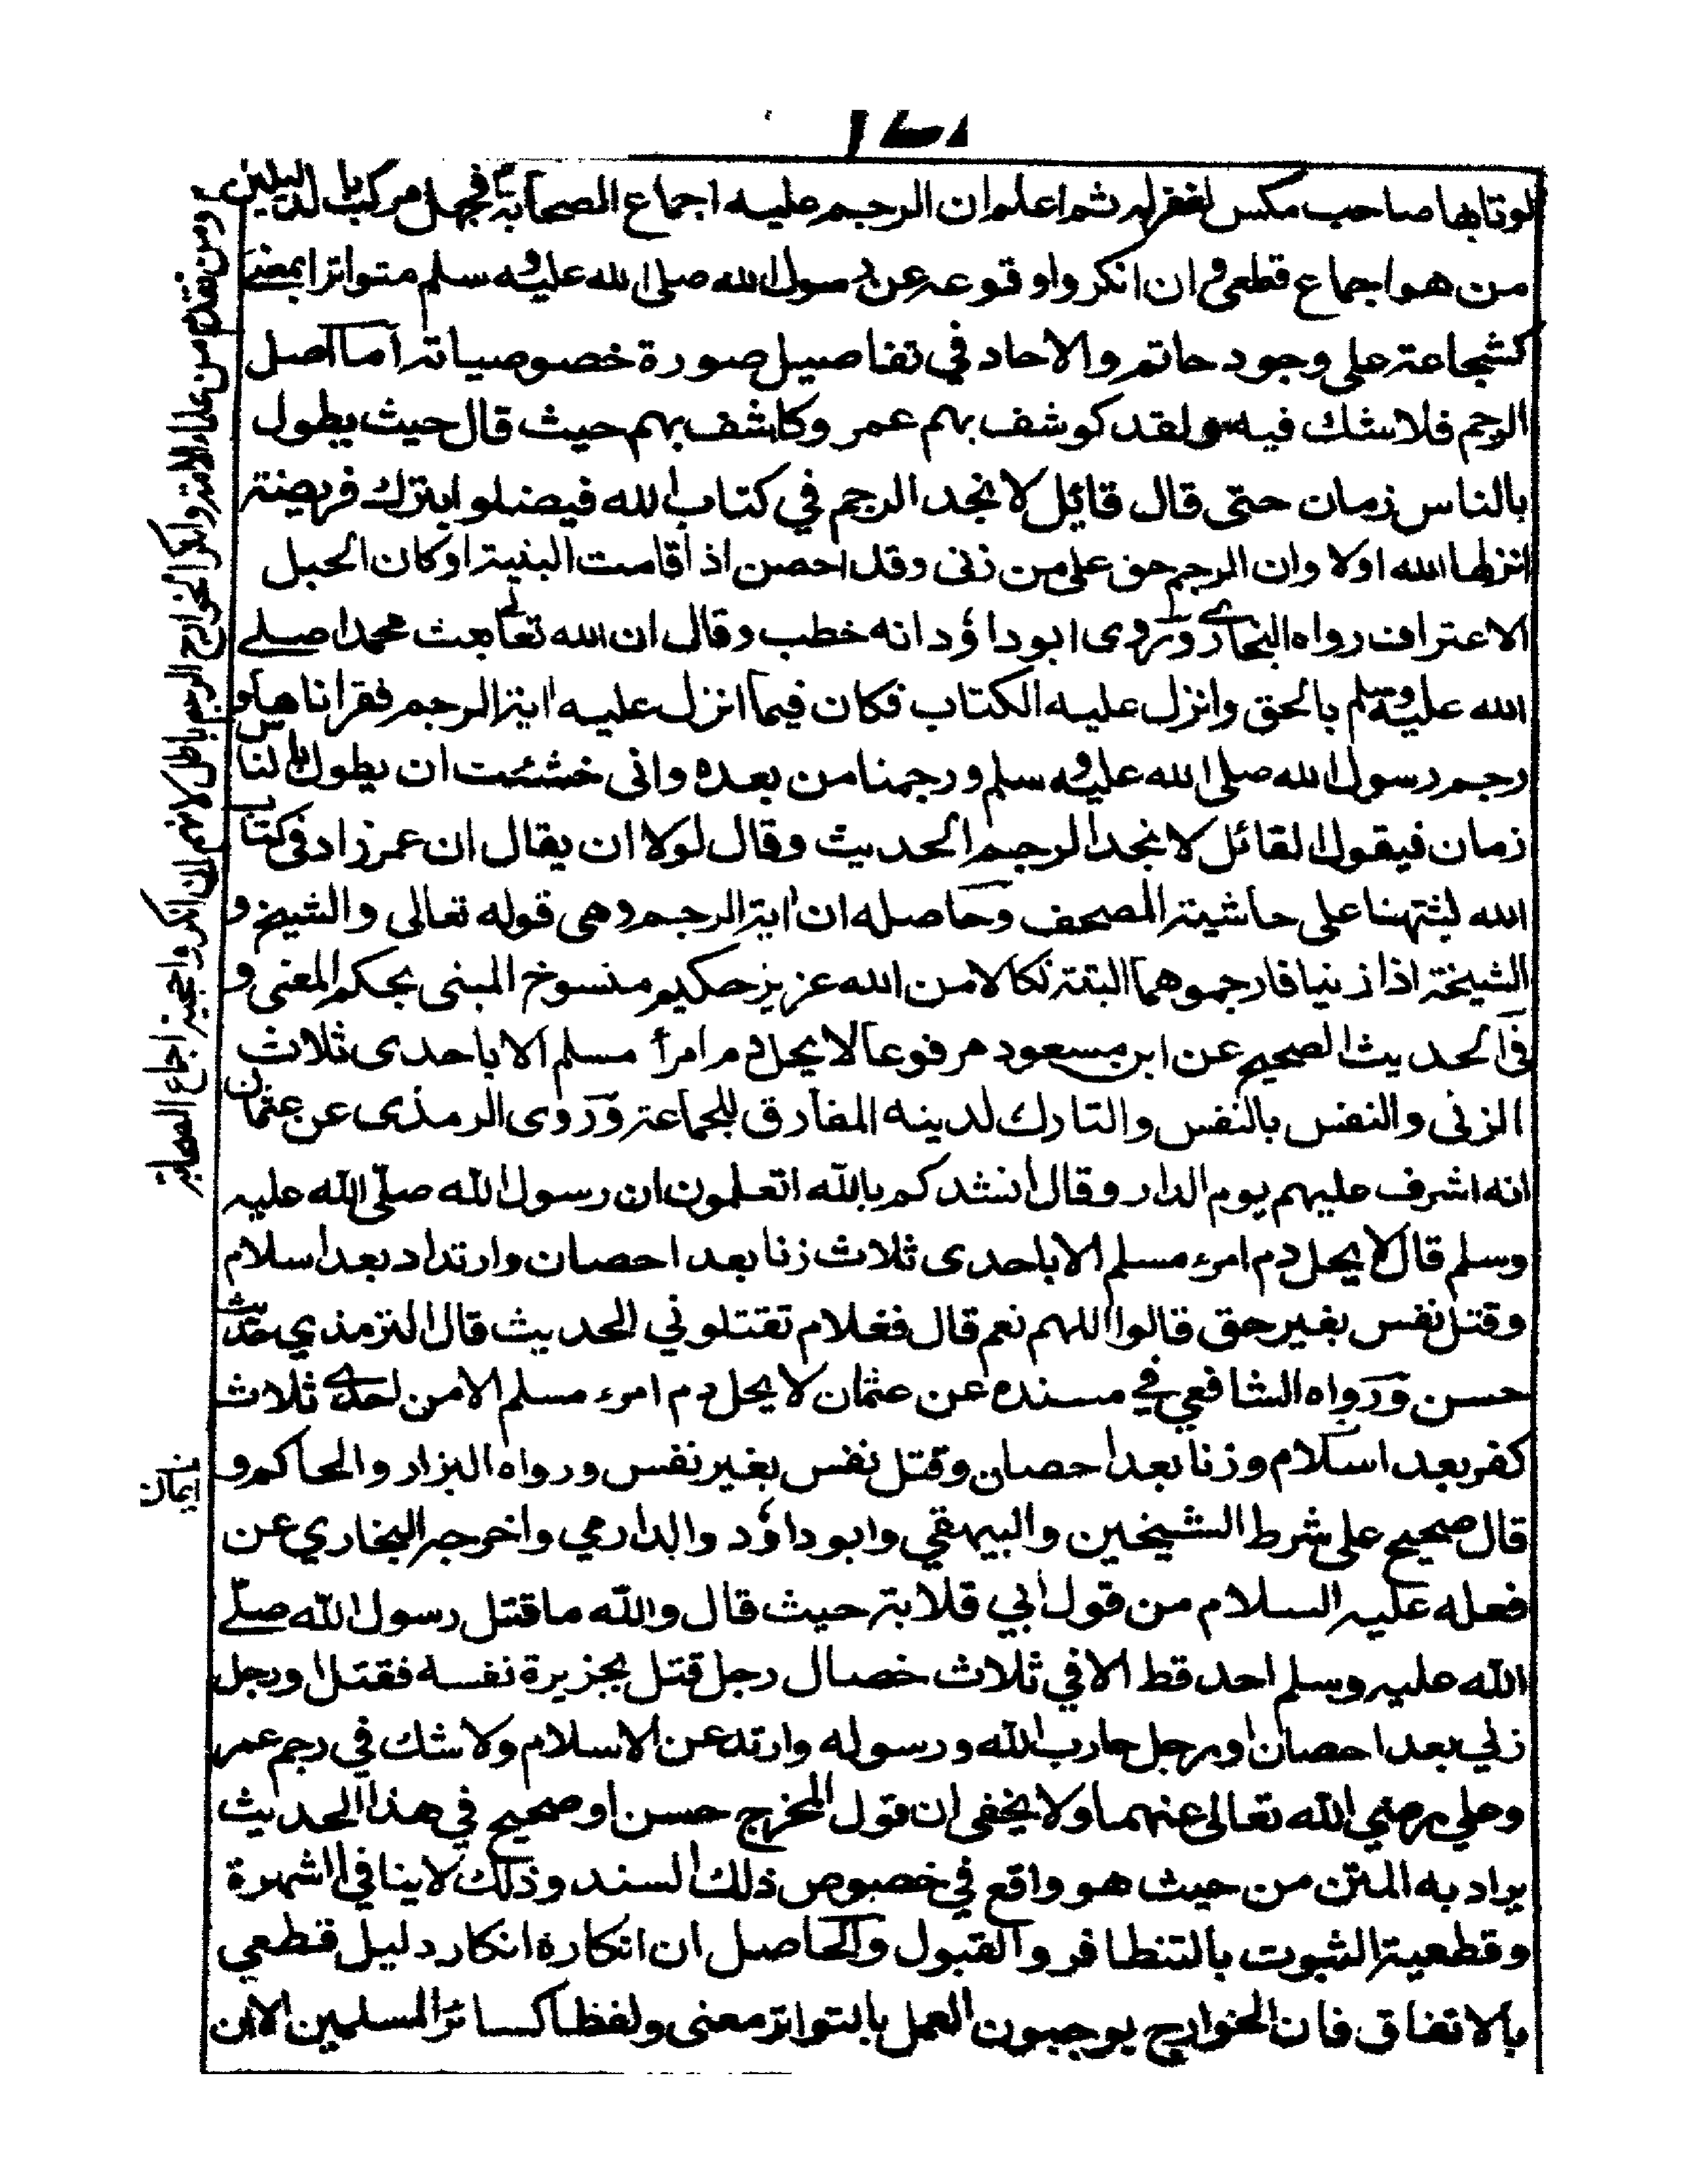 لوتابها صاحب مكس لغفرله ثم اعلم ان الرجم عليه اجماع الصحابة فجهل مركب بالدليلين
من هو اجماع قطعي وان انكروا وقوعه عن رسول الله صلى الله عليه وسلم متواتر المعنى
كشجاعة على وجود حاتم والاحاد في تفاصيل صورة خصوصياته اما اصل
الرجم فلا شك فيه ولقد كوشف بهم عمر وكاشف بهم حيث قال حيث يطول
بالناس زمان حتى قال قائل لا نجد الرجم في كتاب الله فيضلوا بترك فريضة
انزلها الله اولا وان الرجم حق على من زنى وقد احصن اذا قامت البنية او كان الحبل
الاعتراف رواه البخاري وروى ابو داؤد انه خطب وقال ان الله تعالى بعث محمدا صلے
الله عليه وسلم بالحق وانزل عليه الكتاب فكان فيما انزل عليه اية الرجم فقراناها و
رجم رسول الله صلى الله عليه وسلم ورجمنا من بعده وانى خشئت ان يطول بالناس
زمان فيقول القائل لا نجد الرجم الحديث وقال لولا ان يقال ان عمر زاد فى كتاب
الله لثتهنا على حاشية المصحف وحاصله ان اية الرجم وهى قوله تعالى والشيخ و
الشيخة اذا زنيا فارجموهما البتة نكالا من الله عزيز حكيم منسوخ المبنى بحكم المعنى و
فى الحديث الصحيح عن ابن مسعود مرفوعا لا يحل دم امرأ مسلم الا باحدى ثلاث
الزنى والنفس بالنفس والتارك لدينه المفارق للجماعة وروى الرمذى عن عثمان
انه اشرف عليهم يوم الدار وقال انشدكم بالله اتعلمون ان رسول الله صلى الله عليه
وسلم قال لا يحل دم امرء مسلم الا باحدى ثلاث زنا بعد احصان وارتداد بعد اسلام
وقتل نفس بغير حق قالوا اللهم نعم قال فغلام تقتلوني الحديث قال الترمذي حديث
حسن ورواه الشافعي في مسنده عن عثمان لا يحل دم امرء مسلم الا من احدے ثلاث
كفر بعد اسلام وزنا بعد احصان وقتل نفس بغير نفس ورواه البزار والحاكم و
قال صحيح على شرط الشيخين والبيهقي وابو داؤد والدارمي واخرجه البخاري عن
فعله عليه السلام من قول ابي قلابة حيث قال والله ما قتل رسول الله صلے
الله عليه وسلم احد قط الا في ثلاث خصال رجل قتل بجزيرة نفسه فقتل او رجل
زنى بعد احصان او رجل حارب الله ورسوله وارتد عن الاسلام ولا شك في رجم عمر
وعلي رضي الله تعالى عنهما ولا يخفى ان قول المخرج حسن او صحيح في هذا الحديث
يراد به المتن من حيث هو واقع في خصوص ذلك السند وذلك لا ينافي الشهرة
وقطعية الثبوت بالتنظافر والقبول والحاصل ان انكاره انكار دليل قطعي
بالاتفاق فان الخوارج يوجبون العمل بالتواتر معنى ولفظا كسائر المسلمين الا ان
ومن تقدم من علماء الامة وانكر الخوارج الرجم باطل لانهم ان انكروا حجية اجماع الصحابة
ايمان